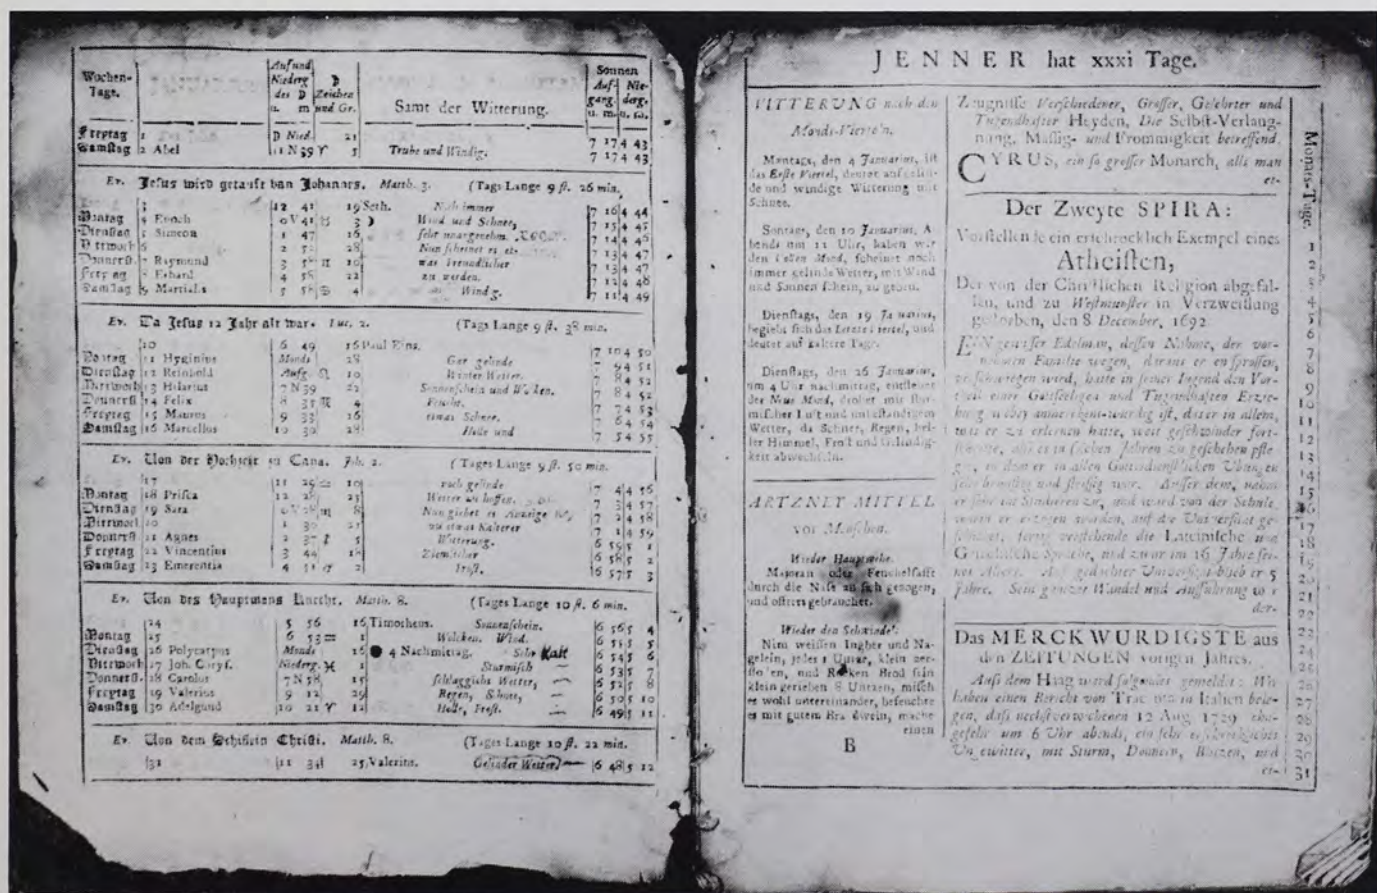 Wochen-Tage. Auf und Niederg des ☽ u. m Zeichen und Gr. Samt der Witterung. Sonnen Auf-gang. u. m. Nie-derg. u. m.
Freytag 1 ☽ Nied. 21 7 17 4 43
Samstag 2 Abel 11 N 39 ♈ 5 Trube und Windig. 7 17 4 43
Ev. Jesus wird getauft van Johannes. Matth. 3. (Tags Lange 9 st. 26 min.
3 12 41 19 Seth. Noch immer 7 16 4 44
Montag 4 Enoch 0 V 41 ♉ 3 ☽ Wind und Schnee, 7 15 4 45
Dienstag 5 Simeon 1 47 16 sehr unangenehm. 7 14 4 46
Mittwoch 6 2 5 28 Nun scheinet es et- 7 13 4 47
Donnerst. 7 Raymund 3 5 ♊ 10 was freundlicher 7 13 4 47
Freytag 8 Erhard 4 58 22 zu werden. 7 12 4 48
Samstag 9 Martialis 5 58 ♋ 4 Windig. 7 11 4 49
Ev. Da Jesus 12 Jahr alt war. Luc. 2. (Tags Lange 9 st. 38 min.
10 6 49 16 Paul Eins. 7 10 4 50
Montag 11 Hyginius Monds 28 Gar gelinde 9 4 51
Dienstag 12 Reinhold Aufg. ♌ 10 Winter Wetter. 7 8 4 52
Mittwoch 13 Hilarius 7 N 39 22 Sonnenschein und Wolken. 7 8 4 52
Donnerst 14 Felix 8 35 ♍ 4 Feucht, 7 7 4 53
Freytag 15 Maurus 9 33 16 etwas Schnee, 7 6 4 54
Samstag 16 Marcellus 10 30 28 Helle und 7 5 4 55
Ev. Von der Hochzeit zu Cana. Joh. 2. (Tages Lange 9 st. 50 min.
17 11 29 ♎ 10 noch gelinde 7 4 4 56
Montag 18 Prisca 12 28 23 Wetter zu hoffen. 7 3 4 57
Dienstag 19 Sara 0 V 28 ♏ 8 Nun giebet es Anzeige 7 2 4 58
Mittwoch 20 1 30 21 zu etwas Kalterer 7 1 4 59
Donnerst 21 Agnes 2 37 5 Witterung. 6 59 5 1
Freytag 22 Vincentius 3 44 18 Ziemlicher 6 58 5 2
Samstag 23 Emerentia 4 51 2 Frost. 6 57 5 3
Ev. Von des Hauptmans Knecht. Matth. 8. (Tages Lange 10 st. 6 min.
24 5 56 16 Timotheus. Sonnenschein. 6 56 5 4
Montag 25 6 53 ♒ 1 Wolcken. Wind. 6 55 5 5
Dienstag 26 Polycarpus Monds 16 ● 4 Nachmittag. Sehr Kalt 6 54 5 6
Mittwoch 27 Joh. Chrys. Niederg. ♓ 1 Sturmisch 6 53 5 7
Donnerst. 28 Carolus 7 N 58 15 schlaggichs Wetter, 6 52 5 8
Freytag 29 Valerius 9 12 29 Regen, Schnee, 6 50 5 10
Samstag 30 Adelgund 10 21 ♈ 12 Helle, Frost. 6 49 5 11
Ev. Von dem Schifflein Christi. Matth. 8. (Tages Lange 10 st. 22 min.
31 11 34 25 Valerius. Gelinder Wetter. 6 48 5 12
JENNER hat xxxi Tage.
WITTERUNG nach den
Monds-Viertel'n.
Montags, den 4 Januarius, ist
das Erste Viertel, deutet auf gelin-
de und windige Witterung mit
Schnee.
Sontags, den 10 Januarius, A-
bends um 11 Uhr, haben wir
den Vollen Mond, scheinet noch
immer gelinde Wetter, mit Wind
und Sonnen schein, zu geben.
Dienstags, den 19 Januarius,
begiebt sich das Letzte Viertel, und
deutet auf kaltere Tage.
Dienstags, den 26 Januarius,
um 4 Uhr nachmittag, entstehet
der Neue Mond, drohet mit stur-
mischer Luft und unbestandigem
Wetter, da Schnee, Regen, hel-
ler Himmel, Frost und Gelindig-
keit abwechseln.
ARTZNEY MITTEL
vor Menschen.
Wieder Hauptwehe.
Majoran oder Fenchelsafft
durch die Nase an sich gezogen,
und offters gebrauchet.
Wieder den Schwindel.
Nim weissen Ingber und Na-
gelein, jedes 1 Untze, klein zer-
stossen, und Rocken Brod fein
klein gerieben 8 Untzen, misch
es wohl untereinander, befeuchte
es mit gutem Brandwein, mache
einen
B
Zeugnisse Verschiedener, Grosser, Gelehrter und
Tugendhaffter Heyden, Die Selbst-Verlaug-
nung, Massig- und Frommigkeit betreffend.
CYRUS, ein so grosser Monarch, alls man
et-
Der Zweyte SPIRA:
Vorstellende ein erschrocklich Exempel eines
Atheisten,
Der von der Christlichen Religion abgefal-
len, und zu Westmunster in Verzweiflung
gestorben, den 8 December, 1692
EIN gewisser Edelman, dessen Nahme, der vor-
nehmen Familie wegen, daraus er entsprossen,
verschwiegen wird, hatte in seiner Jugend den Vor-
theil einer Gottseeligen und Tugendhaften Erzie-
hung wobey anmerckens-wurdig ist, das er in allem,
was er zu erlernen hatte, weit geschwinder fort-
als es in solchen Jahren zu geschehen pfle
get, in dem er in allen Gottesdienstlichen Ubungen
sehr brunstig und fleissig war. Ausser dem, nahm
er sehr im Studieren zu, und ward von der Schule,
worin er erzogen worden, auf die Universitat ge-
fertig verstehende die Lateinische und
Griechische Sprache, und zwar im 16 Jahre sei-
nes Alters. Auf gedachter Universitat blieb er 5
Jahre. Sein gantzer Wandel und Auffuhrung war
der-
Das MERCKWURDIGSTE aus
den ZEITUNGEN vorigen Jahres.
Auss dem Haag ward folgendes gemeldet: Wir
haben einen Bericht von in Italien bele-
gen, dass nechstverwochenen 12 Aug. 1729 ohn-
gefehr um 6 Uhr abends, ein sehr erschreckliches
Ungewitter, mit Sturm, Donnern, Blitzen, und
er-
Monats-Tage.
1
2
3
4
5
6
7
8
9
10
11
12
13
14
15
16
17
18
19
20
21
22
23
24
25
26
27
28
29
30
31